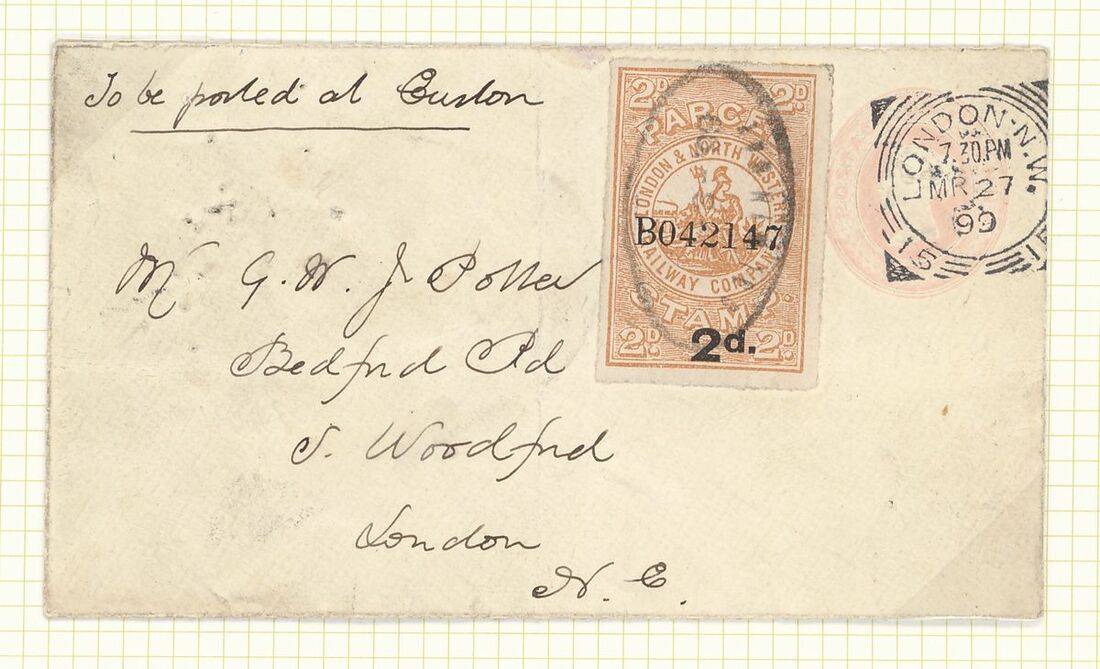 To be posted at Euston
2D. 2D.
PARCEL
LONDON & NORTH WESTERN
B042147
RAILWAY COMPANY
STAMP
2D. 2D.
2d.
LONDON·N.W.
7.30.PM
MR 27
99
15 15
Mr G. W. J. Potter
Bedford Rd
S. Woodford
London
N. E.